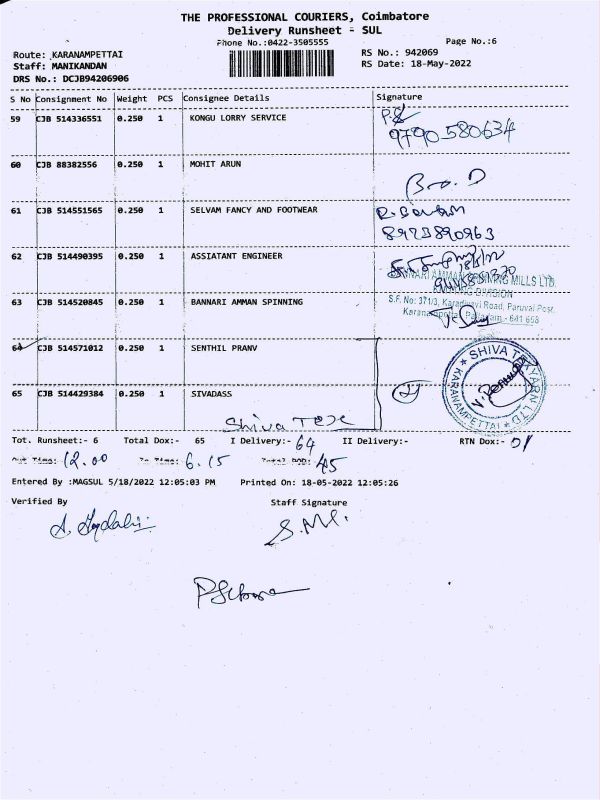 THE PROFESSIONAL COURIERS, Coimbatore
Delivery Runsheet - SUL
Phone No.:0422-3505555
Page No.:6
Route: KARANAMPETTAI
RS No.: 942069
Staff: MANIKANDAN
RS Date: 18-May-2022
DRS No.: DCJB94206906
S No Consignment No Weight PCS Consignee Details Signature
59 CJB 514336551 0.250 1 KONGU LORRY SERVICE
9790580634
60 CJB 88382556 0.250 1 MOHIT ARUN
61 CJB 514551565 0.250 1 SELVAM FANCY AND FOOTWEAR
62 CJB 514490395 0.250 1 ASSIATANT ENGINEER
SPINNING MILLS LTD.
DIVISION
63 CJB 514520845 0.250 1 BANNARI AMMAN SPINNING
S.F. No: 371/3, Karadivavi Road, Paruvai Post,
Karanampettai, Palladam - 641 658
64 CJB 514571012 0.250 1 SENTHIL PRANV
SHIVA TEXYARN LTD
KARANAMPETTAI
65 CJB 514429384 0.250 1 SIVADASS
Shiva Tex
Tot. Runsheet:- 6 Total Dox:- 65 I Delivery:- 64 II Delivery:- RTN Dox:- 01
Out Time: 12.00 In Time: 6.15 Total POD: 45
Entered By :MAGSUL 5/18/2022 12:05:03 PM Printed On: 18-05-2022 12:05:26
Verified By Staff Signature